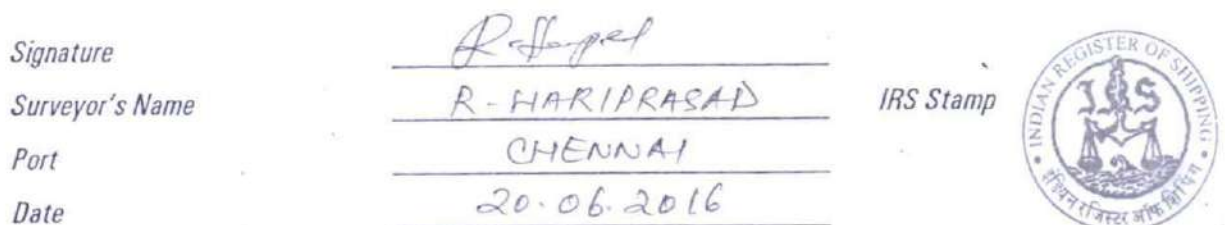 Signature
Surveyor's Name R-HARIPRASAD
IRS Stamp
Port CHENNAI
Date 20.06.2016
INDIAN REGISTER OF SHIPPING
IRS
इंडियन रजिस्टर ऑफ शिपिंग